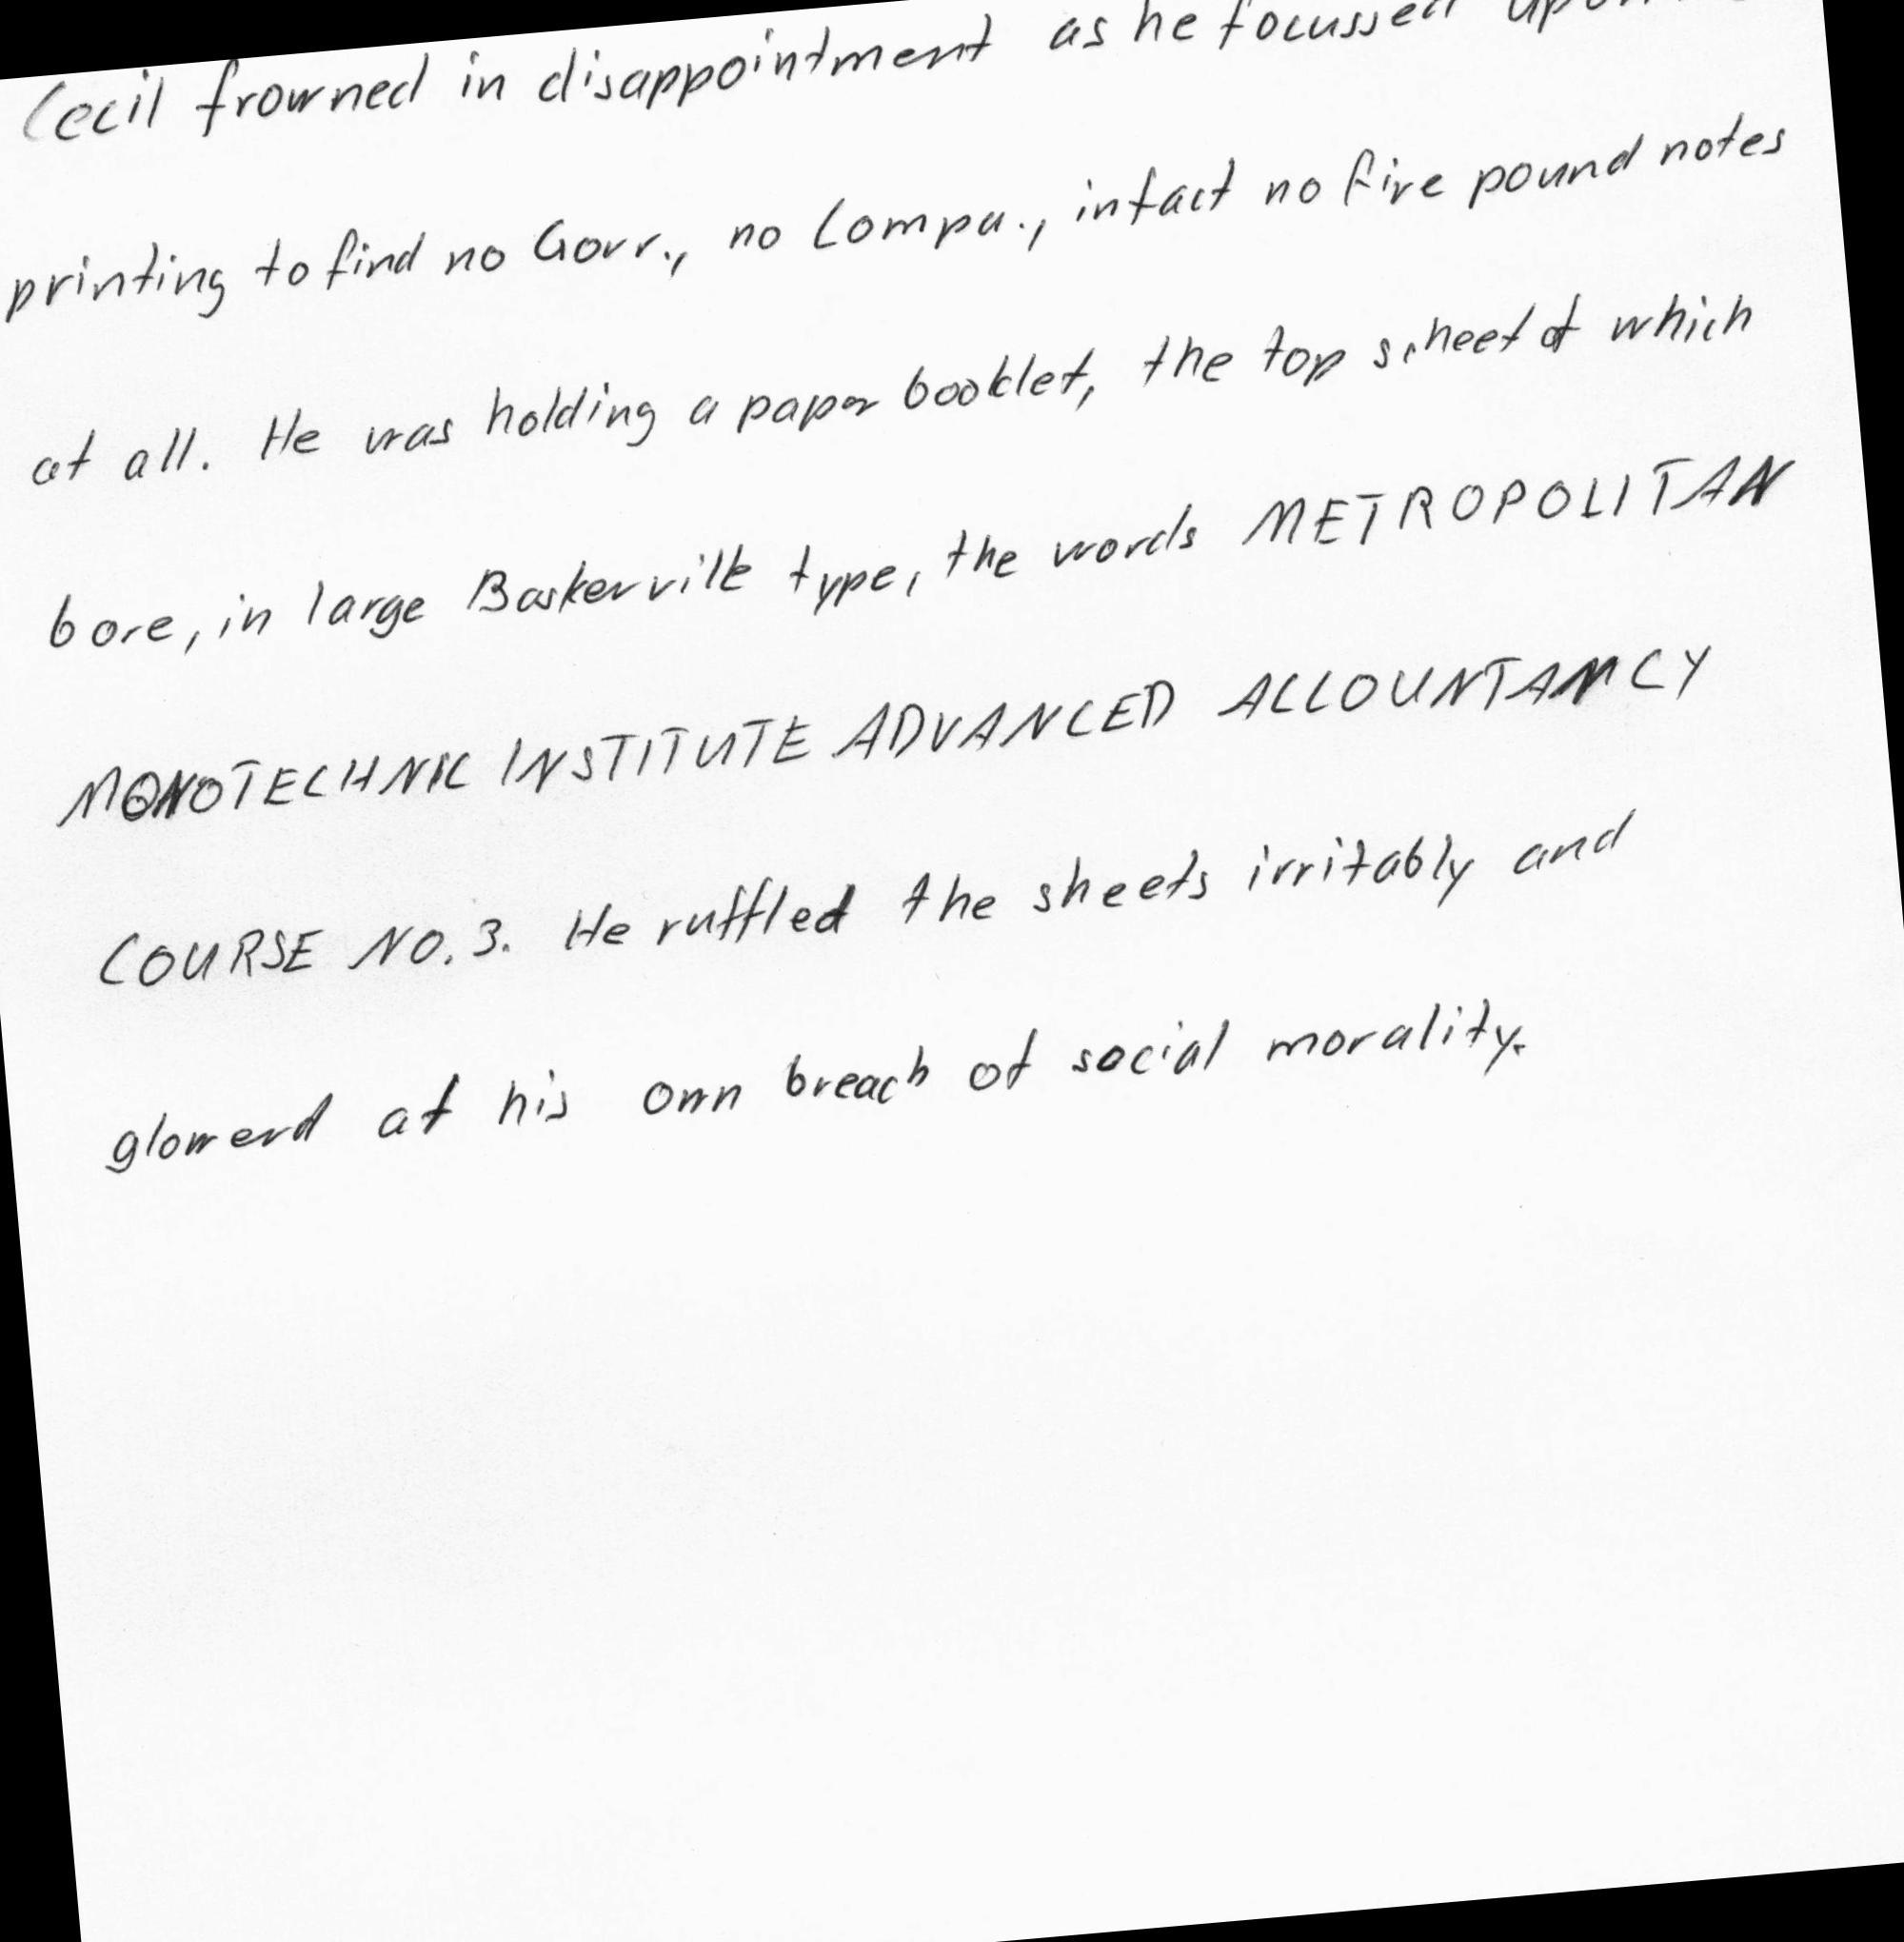 Cecil frowned in disappointment as he focussed upon
printing to find no Govr., no Compa., infact no five pound notes
at all. He was holding a paper booklet, the top scheet of which
bore, in large Baskerville type, the words METROPOLITAN
MONOTECHNIC INSTITUTE ADVANCED ACCOUNTANCY
COURSE NO. 3. He ruffled the sheets irritably and
glowerd at his own breach of social morality.